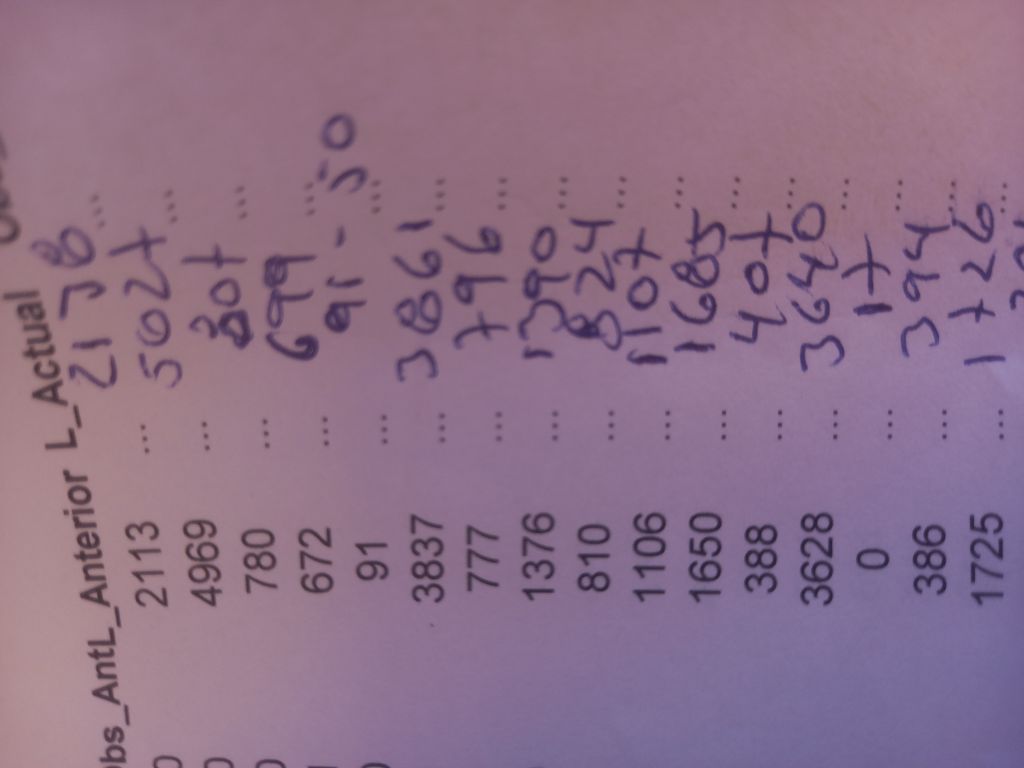 bs_AntL_Anterior L_Actual
2113 ... 2138 ...
4969 ... 5027 ...
780 ... 807 ...
672 ... 699 ...
91 ... 91 - 50 ...
3837 ... 3861 ...
777 ... 796 ...
1376 ... 1390 ...
810 ... 824 ...
1106 ... 1107 ...
1650 ... 1685 ...
388 ... 407 ...
3628 ... 3640 ...
0 ... 17 ...
386 ... 394 ...
1725 ... 1726 ...